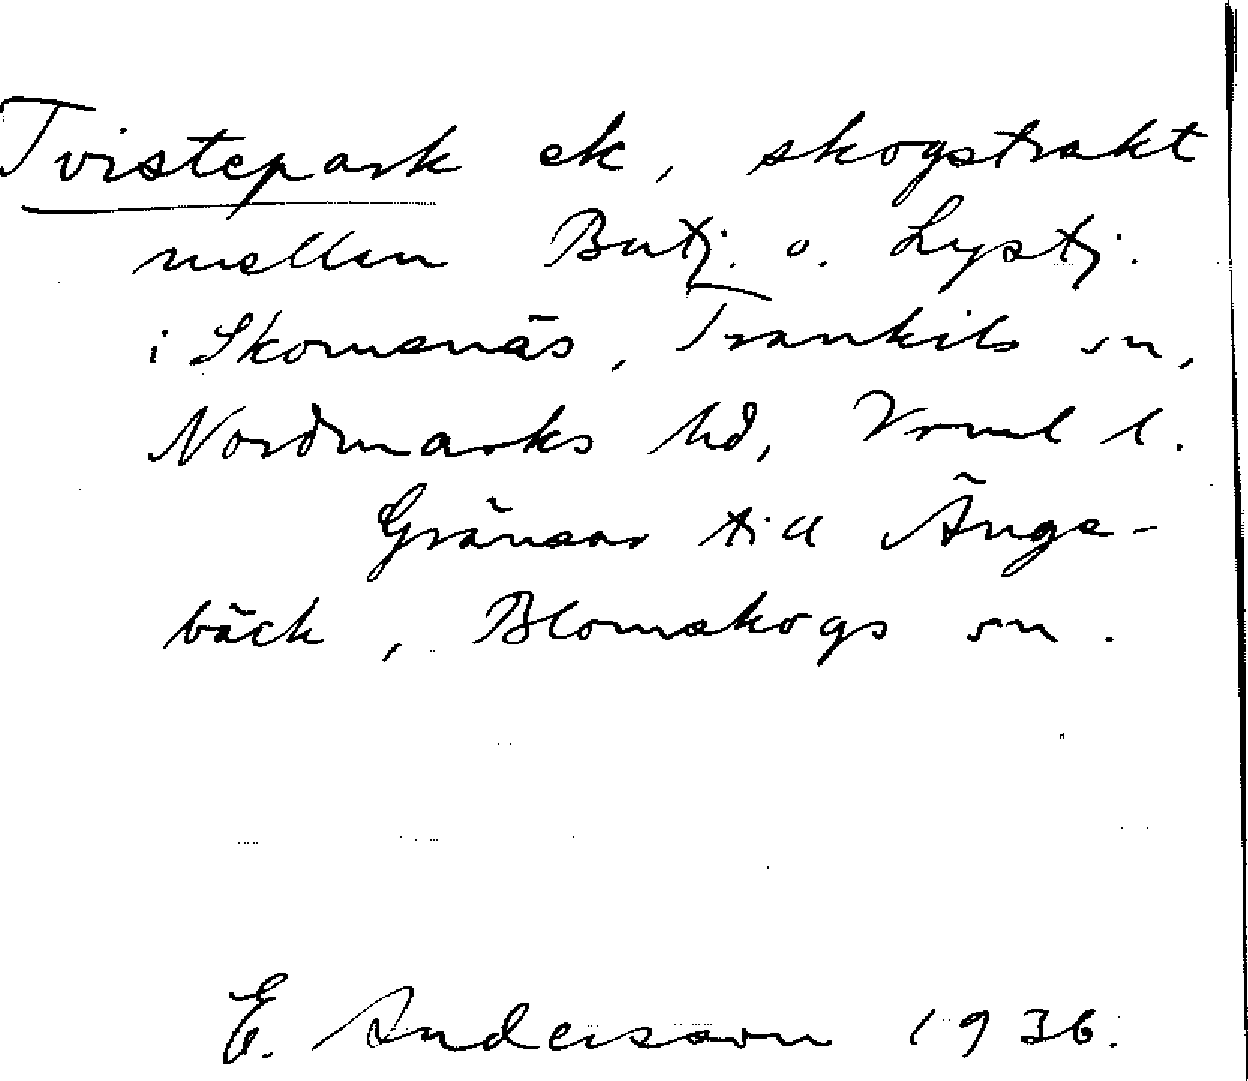 Tvistepark ek, skogstrakt
mellan Butj. o. Lystj.
i Skomenäs, Trankils sn,
Nordmarks hd, Vrml l.
Gränsar till Änge-
bäck, Blomskogs sn.
E. Andersson 1936.